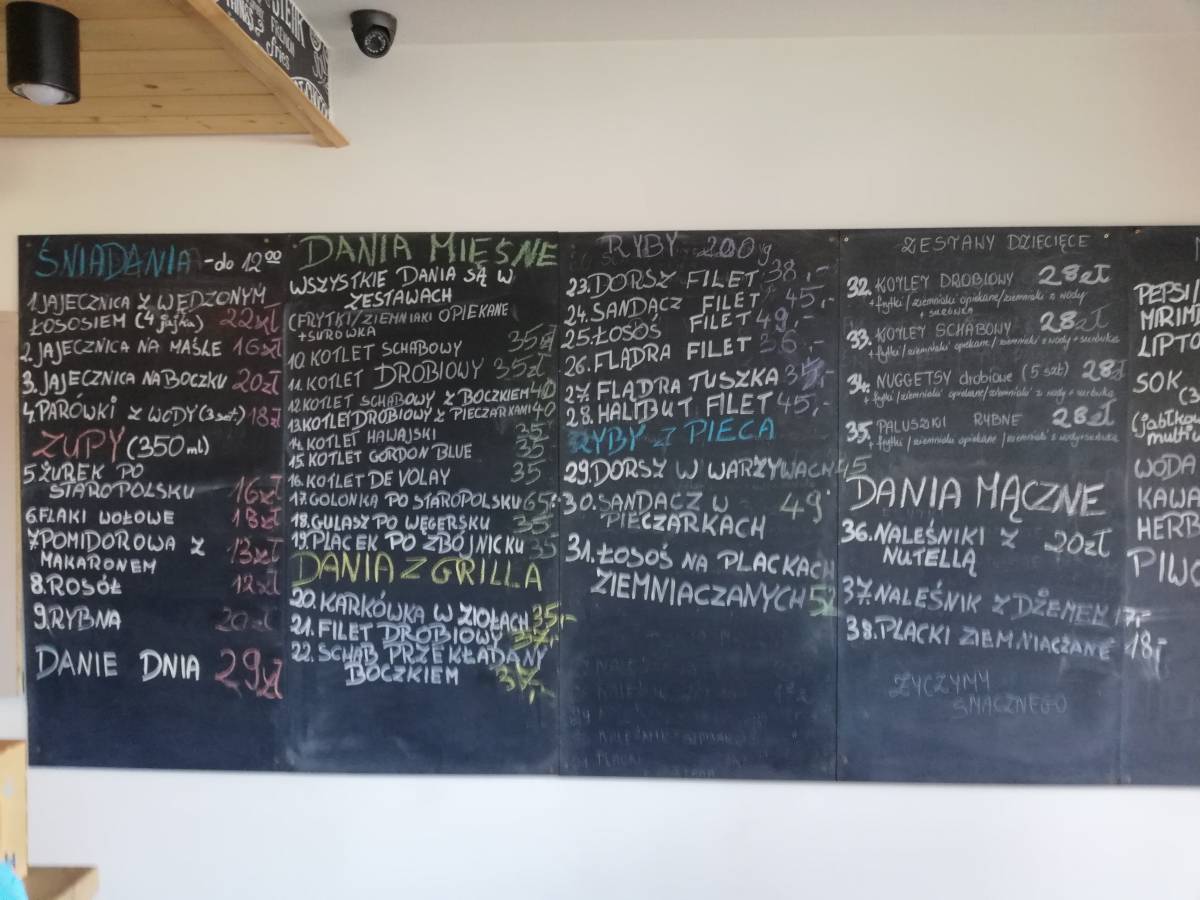 STEAK
FRENCH
fries
ŚNIADANIA - do 12⁰⁰
1. JAJECZNICA Z WĘDZONYM
ŁOSOSIEM (4 jajka) 22zł
2. JAJECZNICA NA MAŚLE 16zł
3. JAJECZNICA NA BOCZKU 20zł
4. PARÓWKI Z WODY (3szt) 18zł
ZUPY (350 ml)
5 ŻUREK PO
STAROPOLSKU 16zł
6. FLAKI WOŁOWE 18zł
7. POMIDOROWA Z
MAKARONEM 13zł
8. ROSÓŁ 12zł
9. RYBNA 20zł
DANIE DNIA 29zł
DANIA MIĘSNE
WSZYSTKIE DANIA SĄ W
ZESTAWACH
(FRYTKI/ZIEMNIAKI OPIEKANE
+SURÓWKA
10. KOTLET SCHABOWY 35zł
11. KOTLET DROBIOWY 35zł
12. KOTLET SCHABOWY Z BOCZKIEM 40
13. KOTLET DROBIOWY Z PIECZARKAMI 40
14. KOTLET HAWAJSKI 35
15. KOTLET GORDON BLUE 35
16. KOTLET DE VOLAY 35
17. GOLONKA PO STAROPOLSKU 65,-
18. GULASZ PO WĘGERSKU 35
19. PLACEK PO ZBÓJNICKU 35
DANIA Z GRILLA
20. KARKÓWKA W ZIOŁACH 35,-
21. FILET DROBIOWY 37,-
22. SCHAB PRZEKŁADANY
BOCZKIEM 37,-
RYBY 200g
23. DORSZ FILET 38,-
24. SANDACZ FILET 45,-
25. ŁOSOŚ FILET 49,-
26. FLĄDRA FILET 36,-
27. FLĄDRA TUSZKA 35,-
28. HALIBUT FILET 45,-
RYBY Z PIECA
29. DORSZ W WARZYWACH 45
30. SANDACZ W 49
PIECZARKACH
31. ŁOSOŚ NA PLACKACH
ZIEMNIACZANYCH 52
ZESTAWY DZIECIĘCE
32. KOTLET DROBIOWY 28zł
+ frytki/ziemniaki opiekane/ziemniaki z wody
+ surówka
33. KOTLET SCHABOWY 28zł
+ frytki/ziemniaki opiekane/ziemniaki z wody + surówka
34. NUGGETSY drobiowe (5 szt) 28zł
+ frytki/ziemniaki opiekane/ziemniaki z wody + surówka
35. PALUSZKI RYBNE 28zł
+ frytki/ziemniaki opiekane/ziemniaki z wody + surówka
DANIA MĄCZNE
36. NALEŚNIKI Z 20zł
NUTELLĄ
37. NALEŚNIK Z DŻEMEM 17,-
38. PLACKI ZIEMNIACZANE 18,-
ŻYCZYMY
SMACZNEGO
PEPSI/
MIRIN
LIPTO
SOK
(jabłko
WODA
KAWA
HERB
PIWO